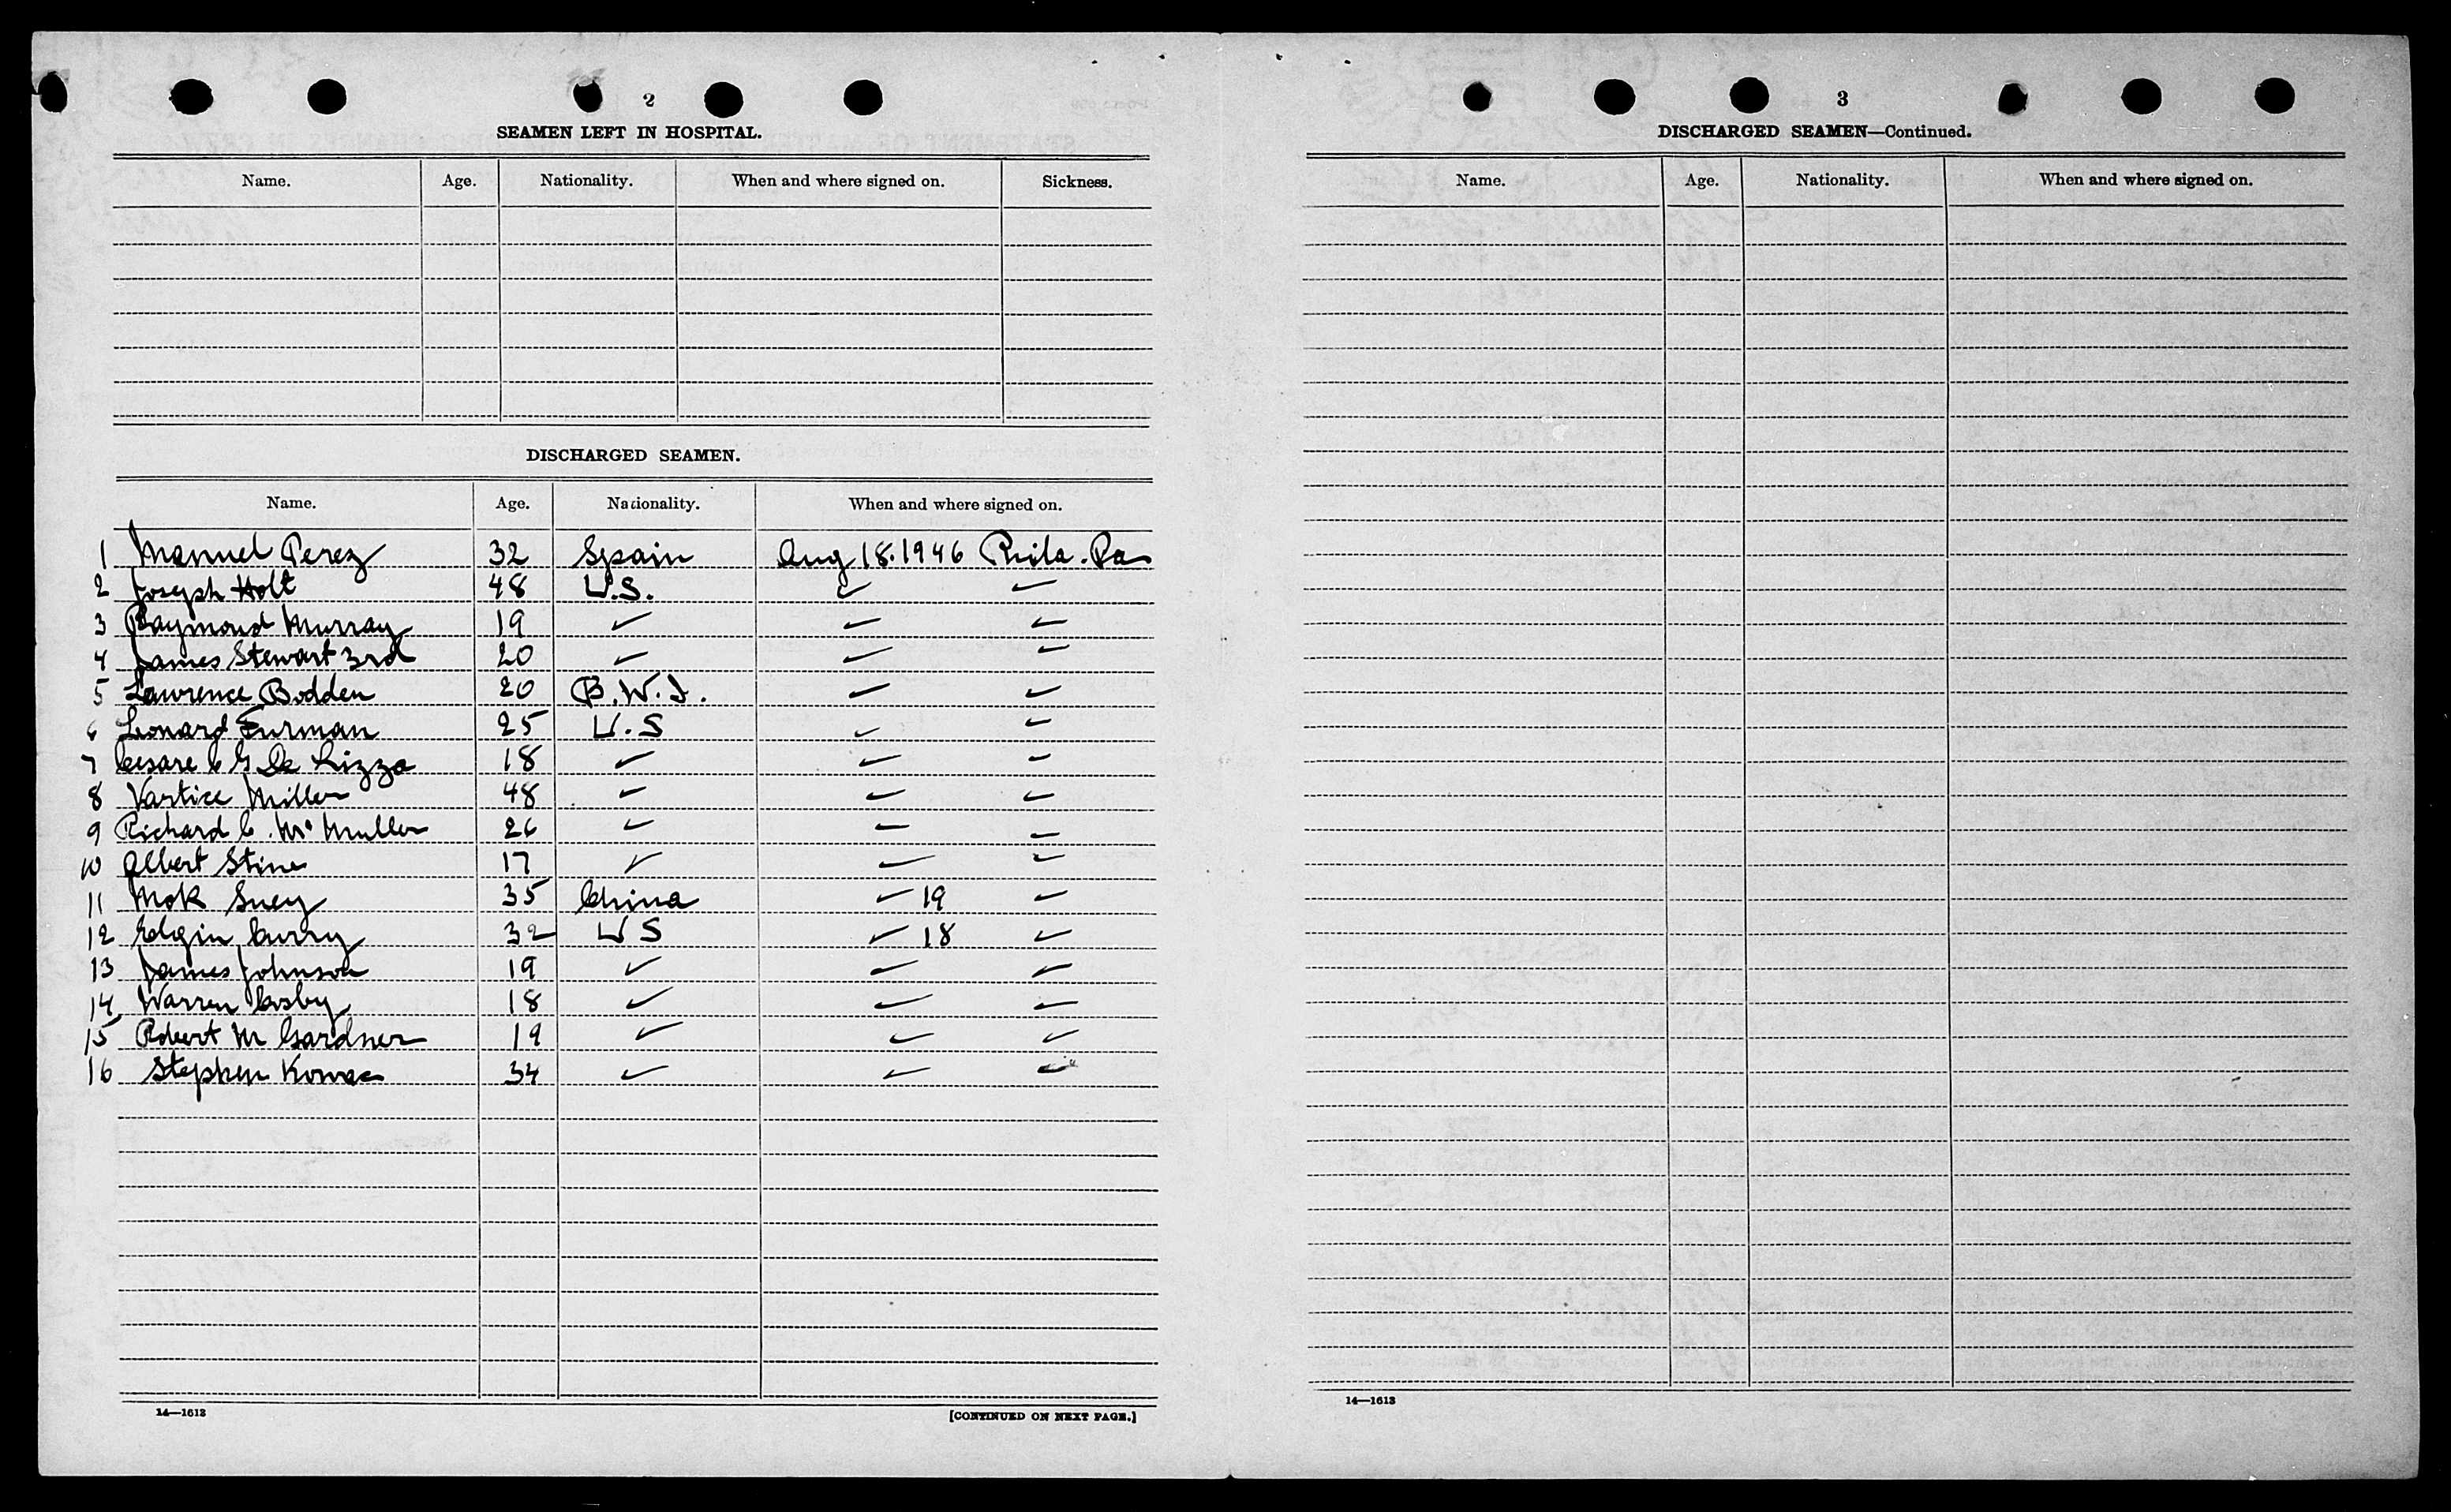 2
SEAMEN LEFT IN HOSPITAL.
Name. Age. Nationality. When and where signed on. Sickness.
DISCHARGED SEAMEN.
Name. Age. Nationality. When and where signed on.
1 Manuel Perez 32 Spain Aug 18. 1946 Phila. Pa
2 Joseph Holt 48 U.S. ✓ ✓
3 Raymond Murray 19 ✓ ✓ ✓
4 James Stewart 3rd 20 ✓ ✓ ✓
5 Lawrence Bodden 20 B.W.I. ✓ ✓
6 Leonard Furman 25 U.S ✓ ✓
7 Cesare C G De Rizzo 18 ✓ ✓ ✓
8 Vartice Miller 48 ✓ ✓ ✓
9 Richard C. Mc Muller 26 ✓ ✓ ✓
10 Albert Stine 17 ✓ ✓ ✓
11 Mok Suey 35 China ✓ 19 ✓
12 Elgin Curry 32 U S ✓ 18 ✓
13 James Johnson 19 ✓ ✓ ✓
14 Warren Cosby 18 ✓ ✓ ✓
15 Robert M Gardner 19 ✓ ✓ ✓
16 Stephen Kovac 34 ✓ ✓ ✓
14—1613
[CONTINUED ON NEXT PAGE.]
3
DISCHARGED SEAMEN—Continued.
Name. Age. Nationality. When and where signed on.
14—1613